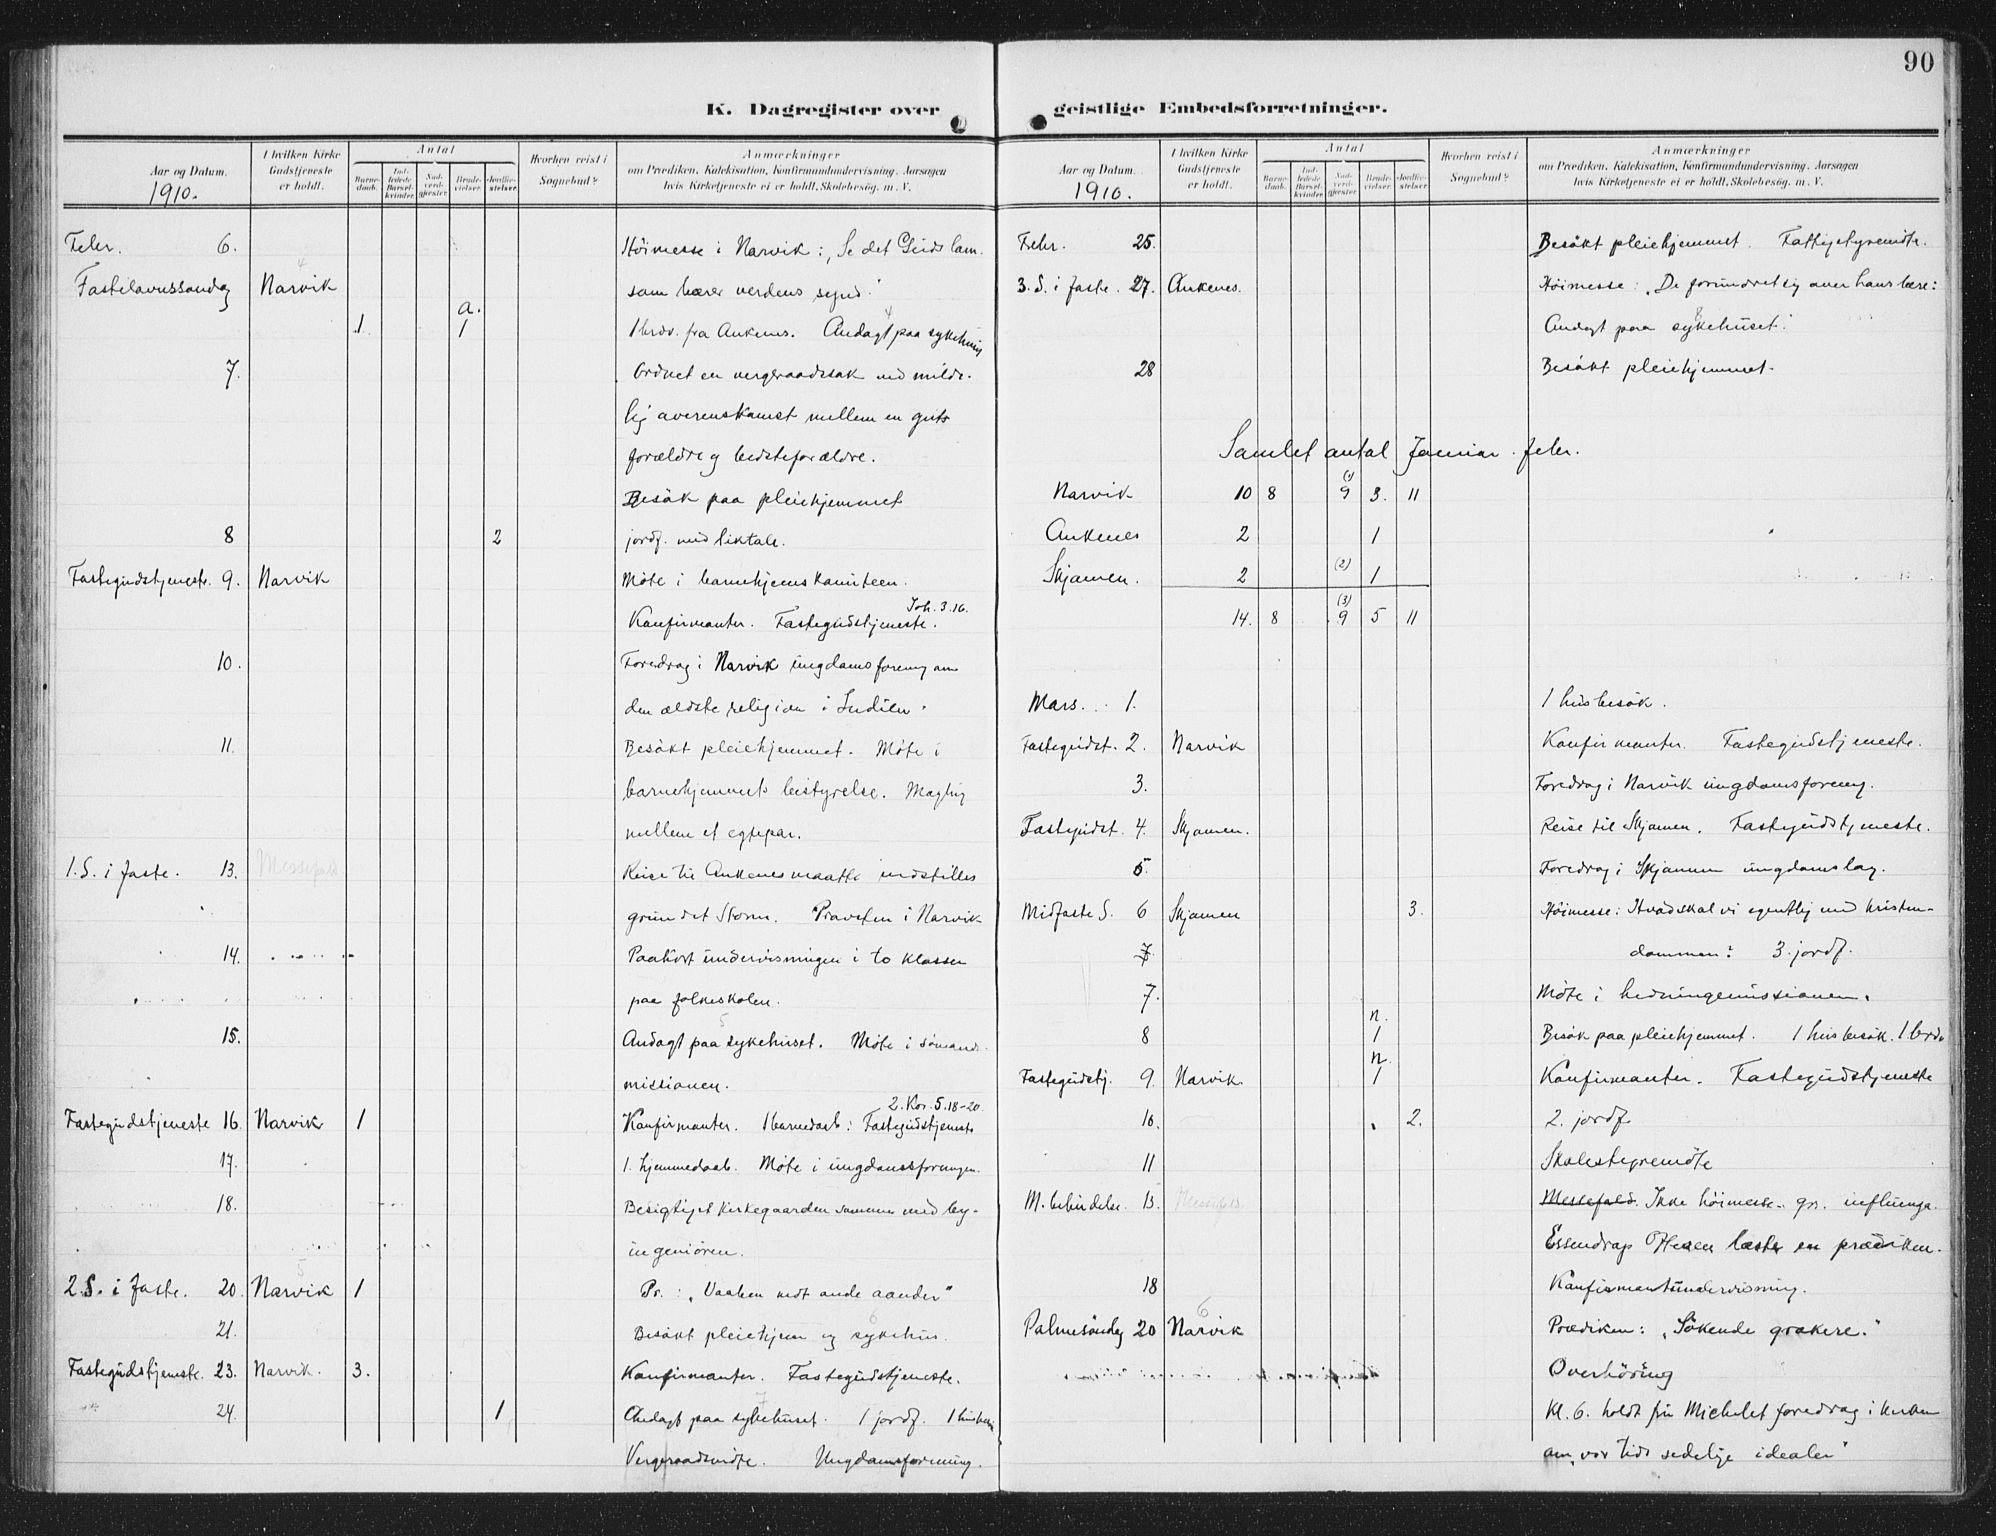 90
K. Dagregister over geistlige Embedsforretninger.
Aar og Datum. I hvilken Kirke Gudstjeneste er holdt. Antal Hvorhen reist i Sognebud? Anmærkninger
Barnedaab. Indledede Barselkvinder. Nadverdgjester. Brudevielser. Jordfæstelser. om Prædiken, Katekisation, Konfirmandundervisning, Aarsagen hvis Kirketjeneste ei er holdt, Skolebesøg. m. V.
1910.
Febr. 6. Höimesse i Narvik: „Se det Guds lam
Fastelavnssondag Narvik 4 som bærer verdens synd."
1 a. 1 1 brv. fra Ankenes. Andagt paa sykehus 4
7. Ordnet en vergeraadssak ved minde-
lig overenskomst mellem en guts
forældre og bedsteforældre.
Besök paa pleiehjemmet
8 2 jordf. med liktale.
Fastegudstjeneste. 9. Narvik Möte i barnehjemskomiteen.
Konfirmanter. Fastegudstjeneste. Joh. 3.16.
10. Foredrag i Narvik ungdomsforening om
den ældste religion i Indien.
11. Besökt pleiehjemmet. Möte i
barnehjemmets bestyrelse. Megling
mellem et egtepar.
1. S. i faste. 13. Messefald Reise til Ankenes maatte indstilles
grundet storm. Provsten i Narvik
14. Paahört undervisningen i to klasser
paa folkeskolen.
15. Andagt paa sykehuset. 5 Möte i sömands-
missionen.
Fastegudstjeneste 16. Narvik 1 Konfirmanter. 1 barnedaab: Fastegudstjeneste 2. Kor. 5.18-20.
17. 1. hjemmedaab. Möte i ungdomsforeningen.
18. Besigtiget kirkegaarden sammen med by-
ingeniören.
2. S. i faste. 20. Narvik 5 1 Pr.: „Vaaben mot onde aander"
21. Besökt pleiehjem og sykehus. 6
Fastegudstjeneste. 23. Narvik. 3. Konfirmanter. Fastegudstjeneste.
24. 1 Andagt paa sykehuset. 7 1 jordf. 1 husbes.
Vergeraadsmöte. Ungdomsforening.
Aar og Datum. I hvilken Kirke Gudstjeneste er holdt. Antal Hvorhen reist i Sognebud? Anmærkninger
Barnedaab. Indledede Barselkvinder. Nadverdgjester. Brudevielser. Jordfæstelser. om Prædiken, Katekisation, Konfirmandundervisning, Aarsagen hvis Kirketjeneste ei er holdt, Skolebesøg. m. V.
1910.
Febr. 25. Besökt pleiehjemmet. Fattigstyremöte.
3. S. i faste. 27. Ankenes. Höimesse: „De forundret sig over hans lære:
Andagt paa sykehuset. 8
28 Besökt pleiehjemmet.
Samlet antal Januar. febr.
Narvik 10 8 (1) 9 3. 11
Ankenes 2 1
Skjomen. 2 (2) 1
14. 8 (3) 9 5 11
Mars. 1. 1 husbesök.
Fastegudst. 2. Narvik Konfirmanter. Fastegudstjeneste.
3. Foredrag i Narvik ungdomsforening.
Fastegudst. 4. Skjomen. Reise til Skjomen. Fastegudstjeneste.
5. Foredrag i Skjomen ungdomslag.
Midfaste S. 6 Skjomen 3. Höimesse: Hvad skal vi egentlig med kristen-
7. dommen? 3. jordf.
7. Möte i hedningemissionen.
8 n. 1 Besök paa pleiehjemmet. 1 husbesök. 1. brv.
Fastegudstj. 9. Narvik. n. 1 Konfirmanter. Fastegudstjeneste
10. 2. 2. jordf.
11 Skolestyremöte
M. bebudelse. 13. Messefald. Messefald. Ikke höimesse gr. influenza.
Essendrop Olsen læste en prædiken.
18 Konfirmantundervisning.
Palmesöndag 20 Narvik 6 Prædiken: „Sökende grækere."
Overhöring
Kl. 6. holdt frk Michelet foredrag i kirken
om „vor tids sedelige idealer"